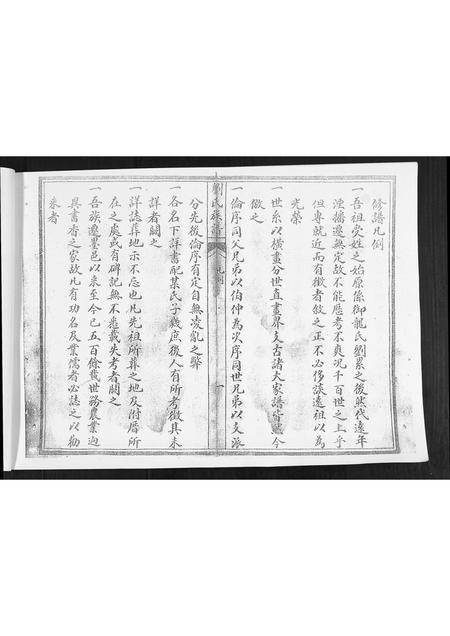 修譜凡例
一吾祖受姓之始原係御龍氏劉累之後然代遠年
湮播遷無定故不能歷考不爽況千百世之上乎
但專就近而有徵者敘之正不必侈談遠祖以為
光榮
一世系以橫畫分世直畫界支古諸大家譜皆然今
倣之
一倫序同父兄弟以伯仲為次序同世兄弟以支派
劉氏族譜
凡例
一
分先後倫序有定自無凌亂之弊
一各名下詳書配某氏子幾庶後人有所考徵其未
詳者闕之
一詳誌葬地示不忘也凡先祖所葬之地及附厝所
在之處或有碑記無不悉載失考者闕之
一吾族遷墨邑以來至今已五百餘載世務農業迨
具書香之家故凡有功名及業儒者必誌之以勸
來者